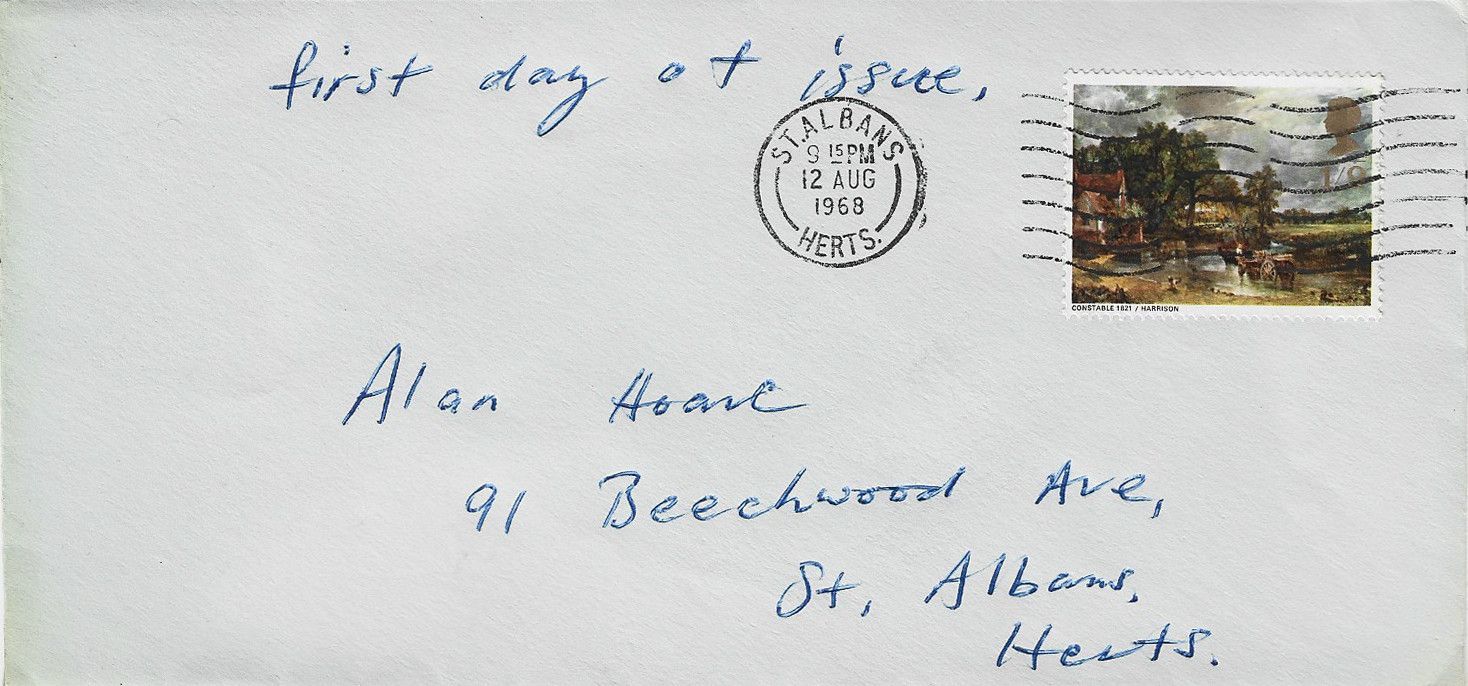 first day of issue,
ST.ALBANS
9 15 PM
12 AUG
1968
HERTS.
1/9
CONSTABLE 1821 / HARRISON
Alan Hoare
91 Beechwood Ave,
St, Albans,
Herts.